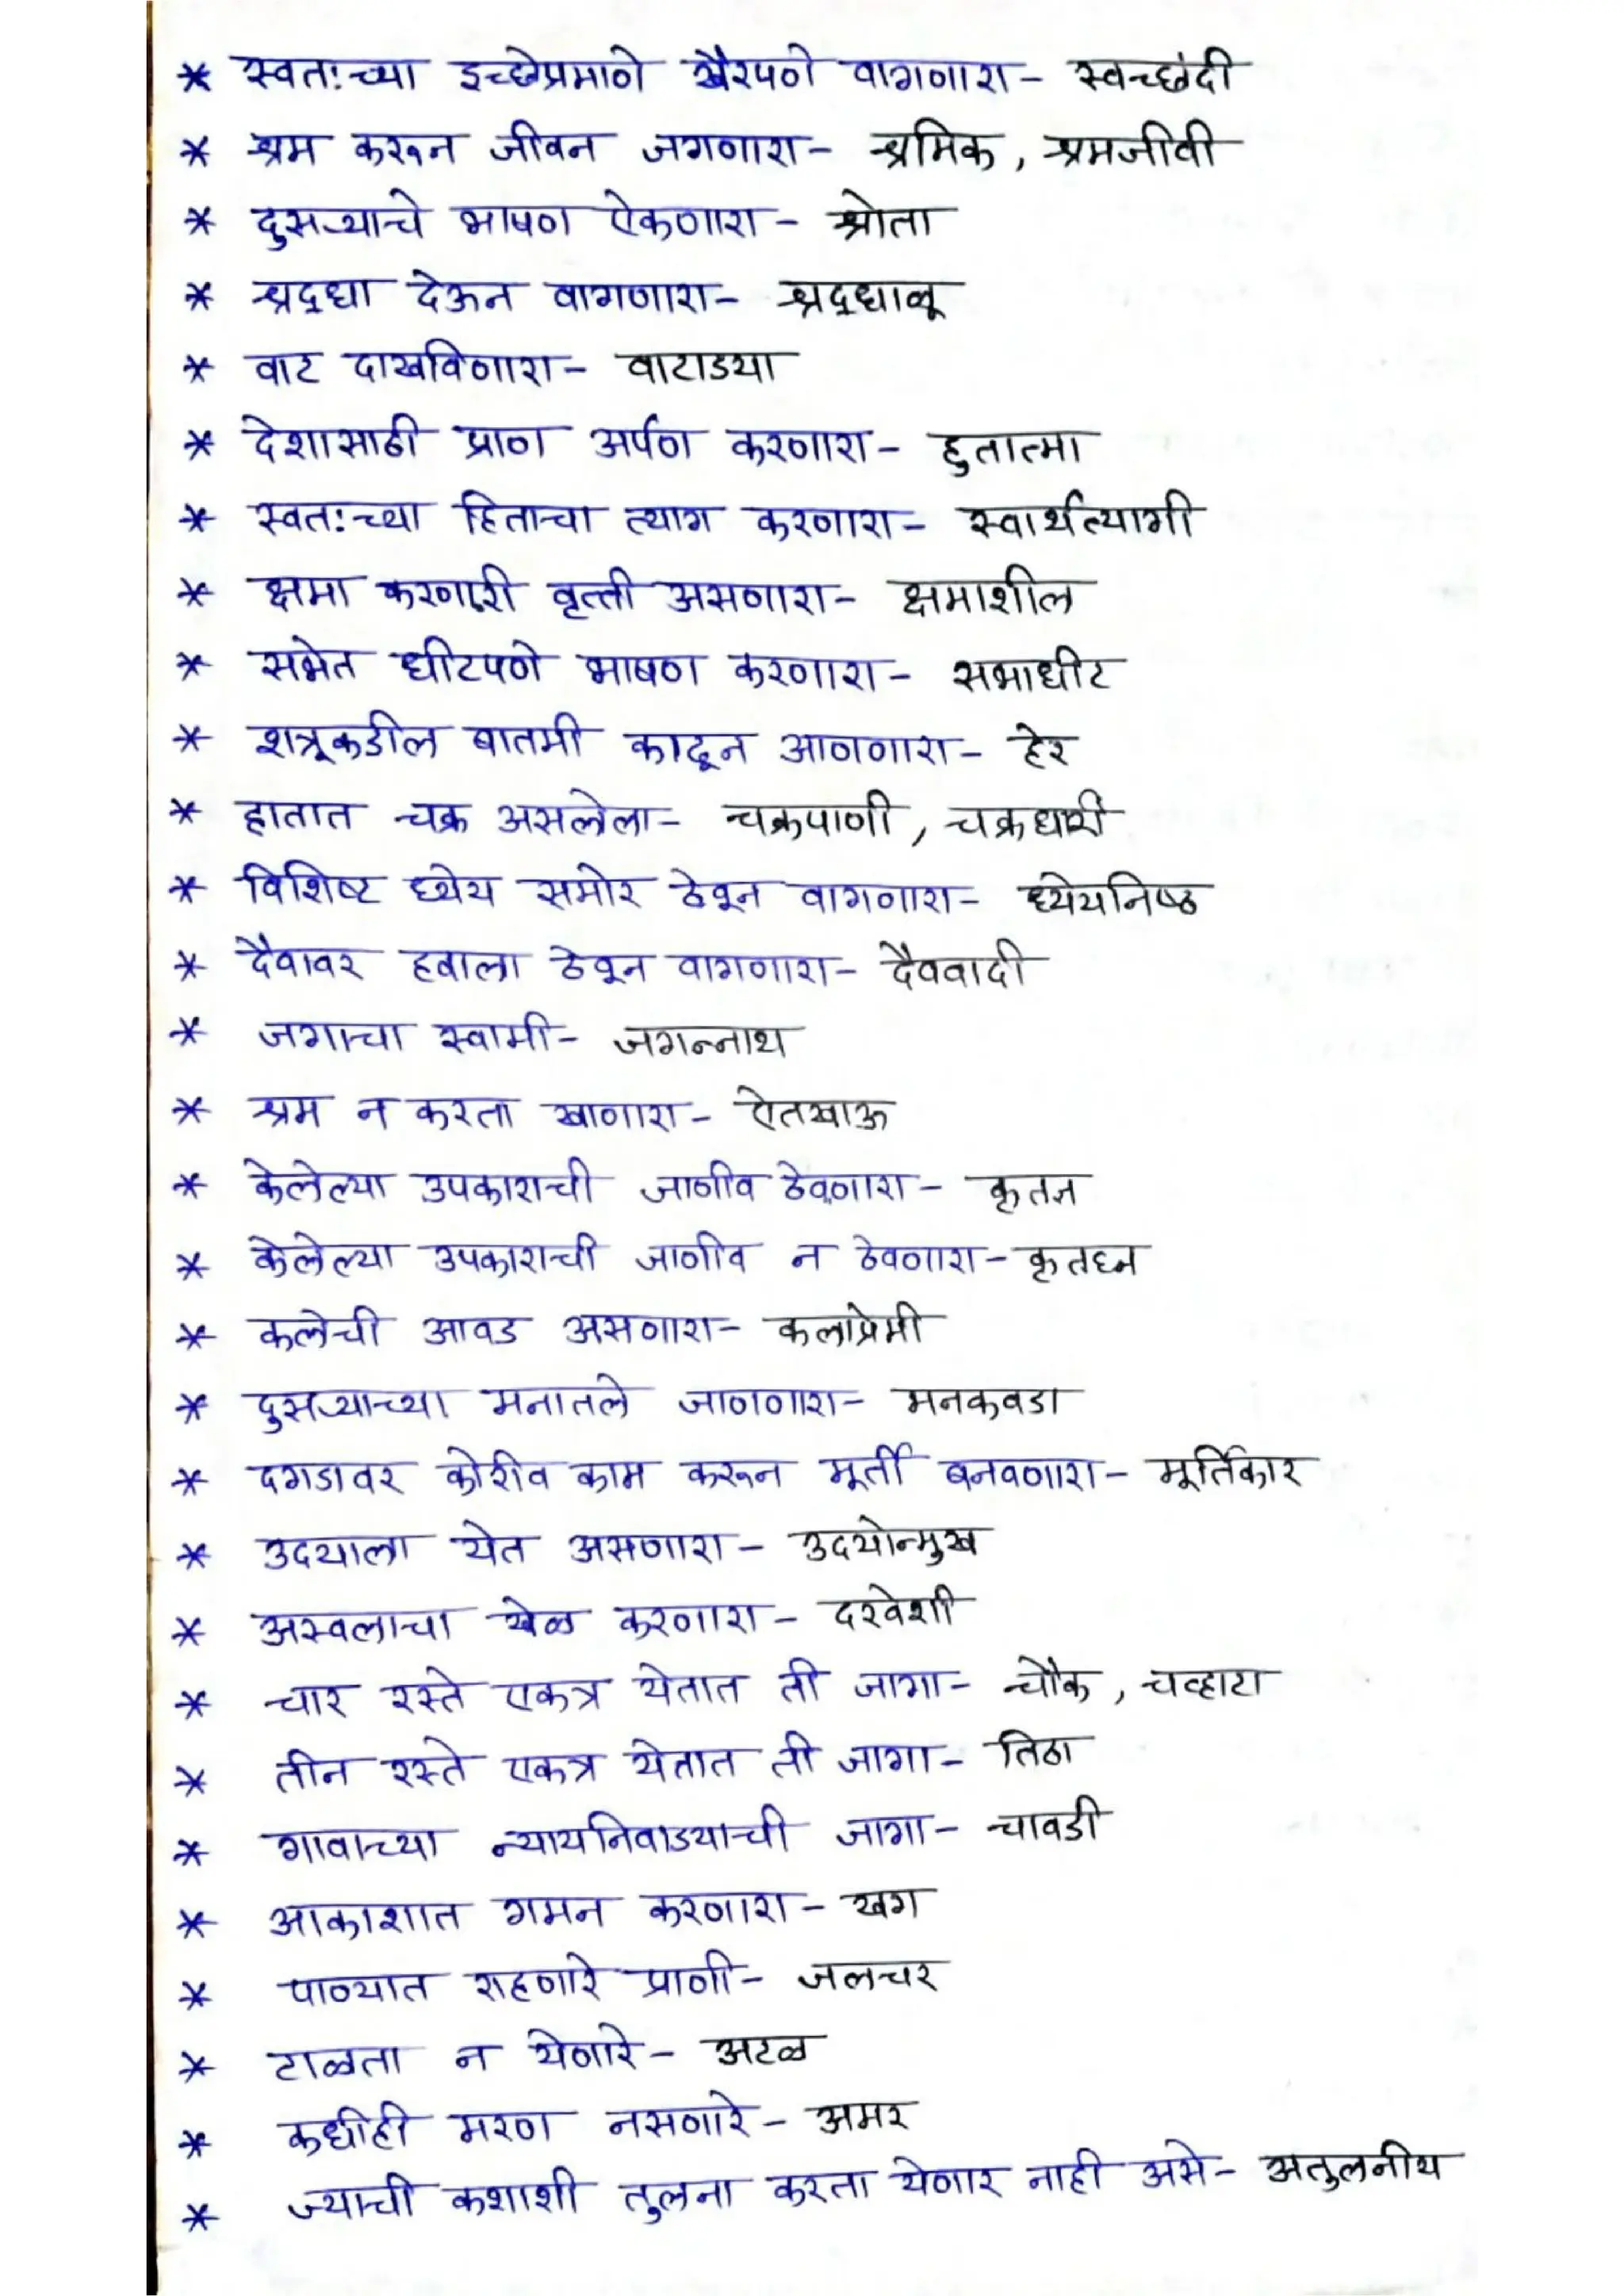 * स्वतःच्या इच्छेप्रमाणे स्वैरपणे वागणारा - स्वच्छंदी
* श्रम करून जीवन जगणारा - श्रमिक, श्रमजीवी
* दुसऱ्याचे भाषण ऐकणारा - श्रोता
* श्रद्धा देऊन वागणारा - श्रद्धाळू
* वाट दाखविणारा - वाटाड्या
* देशासाठी प्राण अर्पण करणारा - हुतात्मा
* स्वतःच्या हिताचा त्याग करणारा - स्वार्थत्यागी
* क्षमा करणारी वृत्ती असणारा - क्षमाशील
* सभेत धीटपणे भाषण करणारा - सभाधीट
* शत्रूकडील बातमी काढून आणणारा - हेर
* हातात चक्र असलेला - चक्रपाणी, चक्रधारी
* विशिष्ट ध्येय समोर ठेवून वागणारा - ध्येयनिष्ठ
* दैवावर हवाला ठेवून वागणारा - दैववादी
* जगाचा स्वामी - जगन्नाथ
* श्रम न करता खाणारा - ऐतखाऊ
* केलेल्या उपकाराची जाणीव ठेवणारा - कृतज्ञ
* केलेल्या उपकाराची जाणीव न ठेवणारा - कृतघ्न
* कलेची आवड असणारा - कलाप्रेमी
* दुसऱ्याच्या मनातले जाणणारा - मनकवडा
* दगडावर कोरीव काम करून मूर्ती बनवणारा - मूर्तिकार
* उदयाला येत असणारा - उदयोन्मुख
* अस्वलाचा खेळ करणारा - दरवेशी
* चार रस्ते एकत्र येतात ती जागा - चौक, चव्हाटा
* तीन रस्ते एकत्र येतात ती जागा - तिठा
* गावाच्या न्यायनिवाड्याची जागा - चावडी
* आकाशात गमन करणारा - खग
* पाण्यात राहणारे प्राणी - जलचर
* टाळता न येणारे - अटळ
* कधीही मरण नसणारे - अमर
* ज्याची कशाशी तुलना करता येणार नाही असे - अतुलनीय